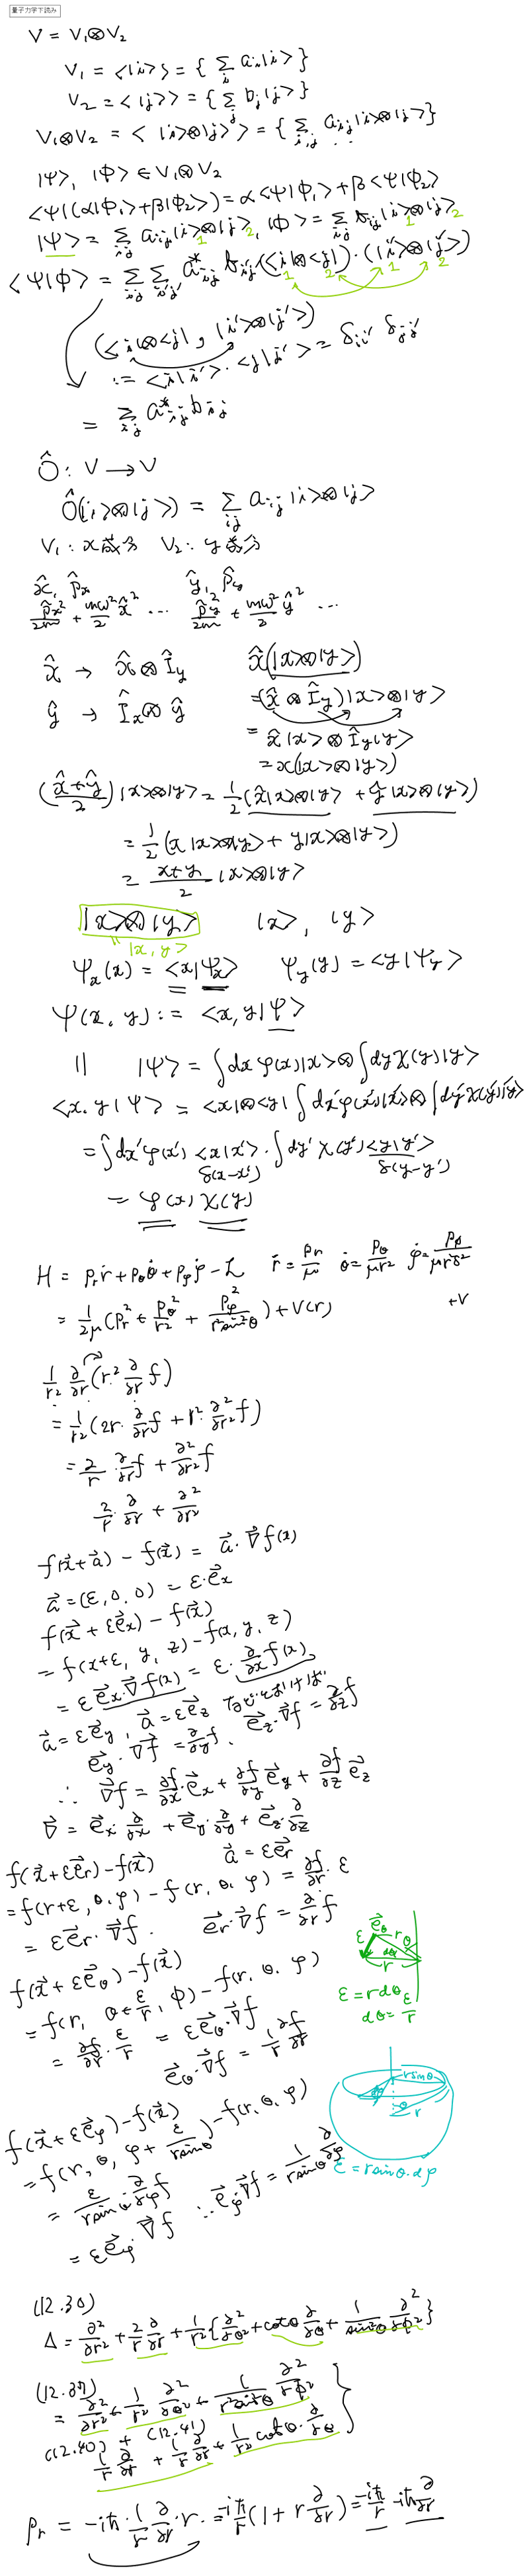 量子力学下読み
V = V₁⊗V₂
V₁ = <|i>> = { Σ_i a_i|i> }
V₂ = <|j>> = { Σ_j b_j|j> }
V₁⊗V₂ = < |i>⊗|j> > = { Σ_{i,j} a_{ij}|i>⊗|j> }
|Ψ>, |Φ> ∈ V₁⊗V₂
<Ψ|(α|Φ₁>+β|Φ₂>) = α<Ψ|Φ₁> + β<Ψ|Φ₂>
|Ψ> = Σ_{ij} a_{ij}|i>₁⊗|j>₂, |Φ> = Σ_{ij} b_{ij}|i>₁⊗|j>₂
<Ψ|Φ> = Σ_{ij} Σ_{i'j'} a*_{ij} b_{i'j'} (<i|⊗<j|)·(|i'>⊗|j'>)
1 2 1 2
(<i|⊗<j|, |i'>⊗|j'>)
:= <i|i'>·<j|j'> = δ_{ii'} δ_{jj'}
= Σ_{ij} a*_{ij} b_{ij}
Ô : V → V
Ô(|i>⊗|j>) = Σ_{ij} a_{ij}|i>⊗|j>
V₁ : x成分 V₂ : y成分
x̂, p̂_x ŷ, p̂_y
p̂_x²/2m + mω²/2 x̂² … p̂_y²/2m + mω²/2 ŷ² …
x̂ → x̂⊗Î_y x̂(|x>⊗|y>)
ŷ → Î_x⊗ŷ = (x̂⊗Î_y)|x>⊗|y>
= x̂|x>⊗Î_y|y>
= x(|x>⊗|y>)
(x̂+ŷ)/2 |x>⊗|y> = 1/2 (x̂|x>⊗|y> + ŷ|x>⊗|y>)
= 1/2 (x|x>⊗|y> + y|x>⊗|y>)
= (x+y)/2 |x>⊗|y>
|x>⊗|y> |x>, |y>
" |x, y>
Ψ_x(x) = <x|Ψ_x> Ψ_y(y) = <y|Ψ_y>
Ψ(x, y) := <x, y|Ψ>
|| |Ψ> = ∫dx φ(x)|x>⊗∫dy χ(y)|y>
<x, y|Ψ> = <x|⊗<y| ∫dx' φ(x')|x'>⊗∫dy' χ(y')|y'>
= ∫dx' φ(x') <x|x'>·∫dy' χ(y') <y|y'>
δ(x-x') δ(y-y')
= φ(x) χ(y)
H = p_r ṙ + p_θ θ̇ + p_φ φ̇ - L ṙ = p_r/μ θ̇ = p_θ/μr² φ̇ = p_φ/μr²s²
= 1/2μ (p_r² + p_θ²/r² + p_φ²/r²sin²θ) + V(r) +V
1/r² ∂/∂r (r² ∂/∂r f)
= 1/r² (2r·∂/∂r f + r²·∂²/∂r² f)
= 2/r·∂/∂r f + ∂²/∂r² f
2/r·∂/∂r + ∂²/∂r²
f(x⃗+a⃗) - f(x⃗) = a⃗·∇⃗f(x)
a⃗ = (ε, 0, 0) = ε·e⃗_x
f(x⃗+εe⃗_x) - f(x⃗)
= f(x+ε, y, z) - f(x, y, z)
= εe⃗_x·∇⃗f(x) = ε·∂/∂x f(x)
a⃗ = εe⃗_y, a⃗ = εe⃗_z
e⃗_y·∇⃗f = ∂/∂y f, e⃗_z·∇⃗f = ∂/∂z f
∴ ∇⃗f = ∂f/∂x·e⃗_x + ∂f/∂y e⃗_y + ∂f/∂z e⃗_z
∇⃗ = e⃗_x·∂/∂x + e⃗_y·∂/∂y + e⃗_z·∂/∂z
f(x⃗+εe⃗_r) - f(x⃗) a⃗ = εe⃗_r
= f(r+ε, θ, φ) - f(r, θ, φ) = ∂f/∂r·ε
= εe⃗_r·∇⃗f. e⃗_r·∇⃗f = ∂/∂r f
f(x⃗+εe⃗_θ) - f(x⃗)
= f(r, θ+ε/r, φ) - f(r, θ, φ)
= ∂f/∂r·ε/r = εe⃗_θ·∇⃗f
e⃗_θ·∇⃗f = 1/r ∂f/∂r
ε e⃗_θ r θ dθ r
ε = rdθ
dθ = ε/r
f(x⃗+εe⃗_φ) - f(x⃗)
= f(r, θ, φ+ε/rsinθ) - f(r, θ, φ)
= ε/rsinθ·∂/∂φ f
= εe⃗_φ·∇⃗f ∴ e⃗_φ·∇⃗f = 1/rsinθ ∂/∂φ
rsinθ dφ θ r
ε = rsinθ·dφ
(12.30)
Δ = ∂²/∂r² + 2/r ∂/∂r + 1/r² {∂²/∂θ² + cotθ ∂/∂θ + 1/sin²θ ∂²/∂φ²}
(12.39)
= ∂²/∂r² + 1/r² ∂²/∂θ² + 1/r²sin²θ ∂²/∂φ²
(12.40) + (12.41)
1/r ∂/∂r + 1/r ∂/∂r + 1/r² cotθ·∂/∂θ
p_r = -iħ·1/r ∂/∂r·r = -iħ/r (1 + r ∂/∂r) = -iħ/r - iħ ∂/∂r